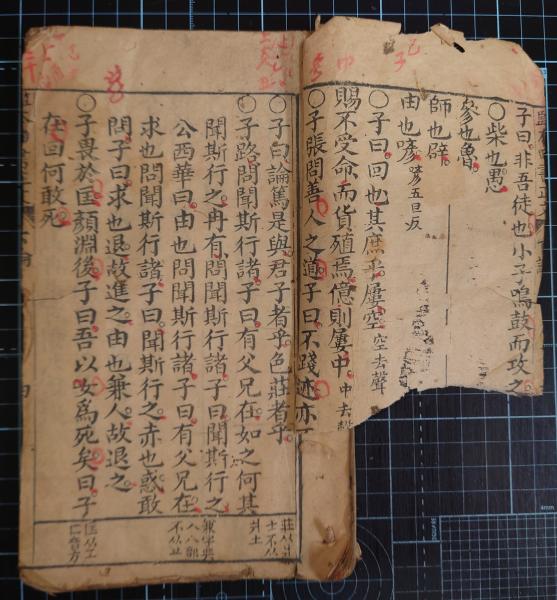 子曰。非吾徒也小子鳴鼓而攻之
〇柴也愚
參也魯。
師也辟。
由也喭。喭五旦反
〇子曰回也其庶乎屢空空去聲
賜不受命而貨殖焉億則屢中。中去聲
〇子張問善人之道子曰不踐迹亦不
〇子曰論篤是與君子者乎色莊者乎。
〇子路問聞斯行諸子曰有父兄在如之何其
聞斯行之冉有問聞斯行諸子曰聞斯行之
公西華曰由也問聞斯行諸子曰有父兄在
求也問聞斯行諸子曰聞斯行之赤也惑敢
問子曰求也退故進之由也兼人故退之
〇子畏於匡顏淵後子曰吾以女為死矣曰子
在回何敢死